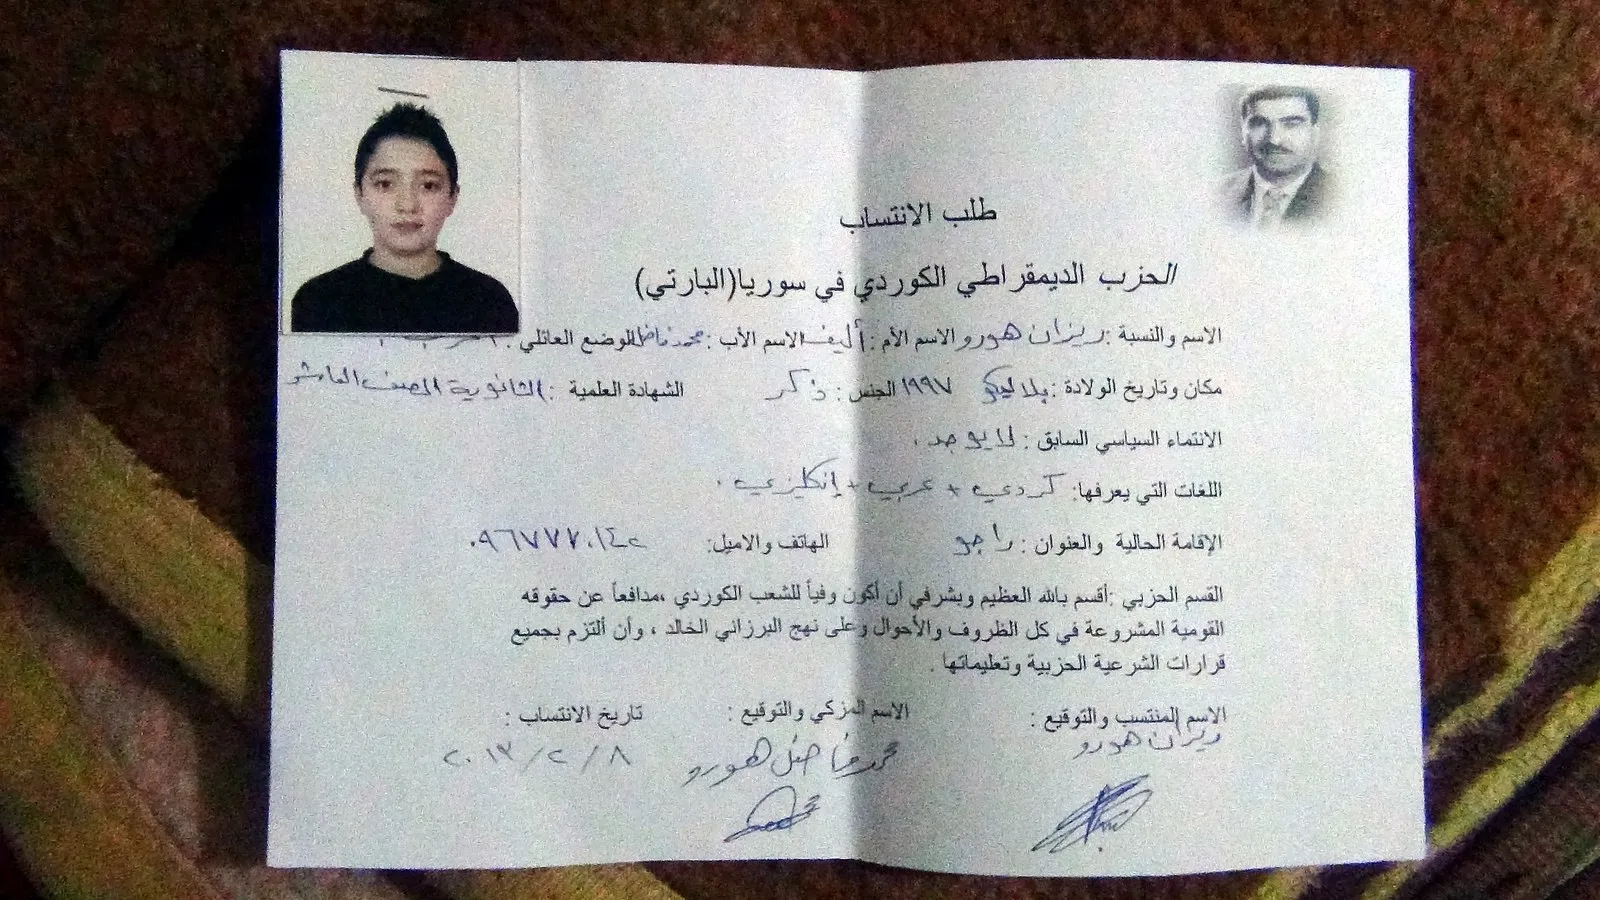 طلب الانتساب
الحزب الديمقراطي الكوردي في سوريا(البارتي)
الاسم والنسبة :ريزان هورو الاسم الأم : أليف الاسم الأب : محمد فاضل الوضع العائلي :
مكان وتاريخ الولادة : ١٩٩٧ الجنس : ذكر الشهادة العلمية : الثانوية الصف العاشر
الانتماء السياسي السابق : لا يوجد .
اللغات التي يعرفها: كردي + عربي + إنكليزي .
الإقامة الحالية والعنوان : راجو الهاتف والاميل: ٠٩٦٧٧٧٠١٤٢
القسم الحزبي :أقسم بالله العظيم وبشرفي أن أكون وفياً للشعب الكوردي ،مدافعاً عن حقوقه
القومية المشروعة في كل الظروف والأحوال وعلى نهج البرزاني الخالد ، وأن ألتزم بجميع
قرارات الشرعية الحزبية وتعليماتها .
الاسم المنتسب والتوقيع : الاسم المزكي والتوقيع : تاريخ الانتساب :
ريزان هورو محمد فاضل هورو ٢٠١٣/٢/٨